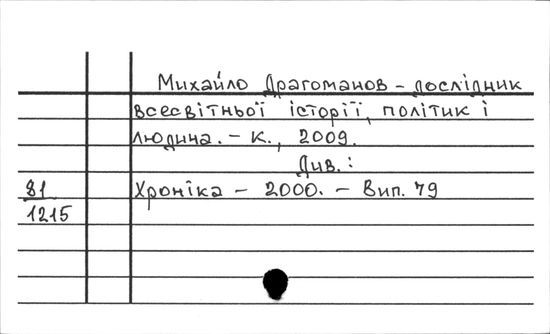 Михайло Драгоманов – дослідник
всесвітньої історії, політик і
людина. – К., 2009.
Див.:
81 Хроніка – 2000. – Вип. 79
1215